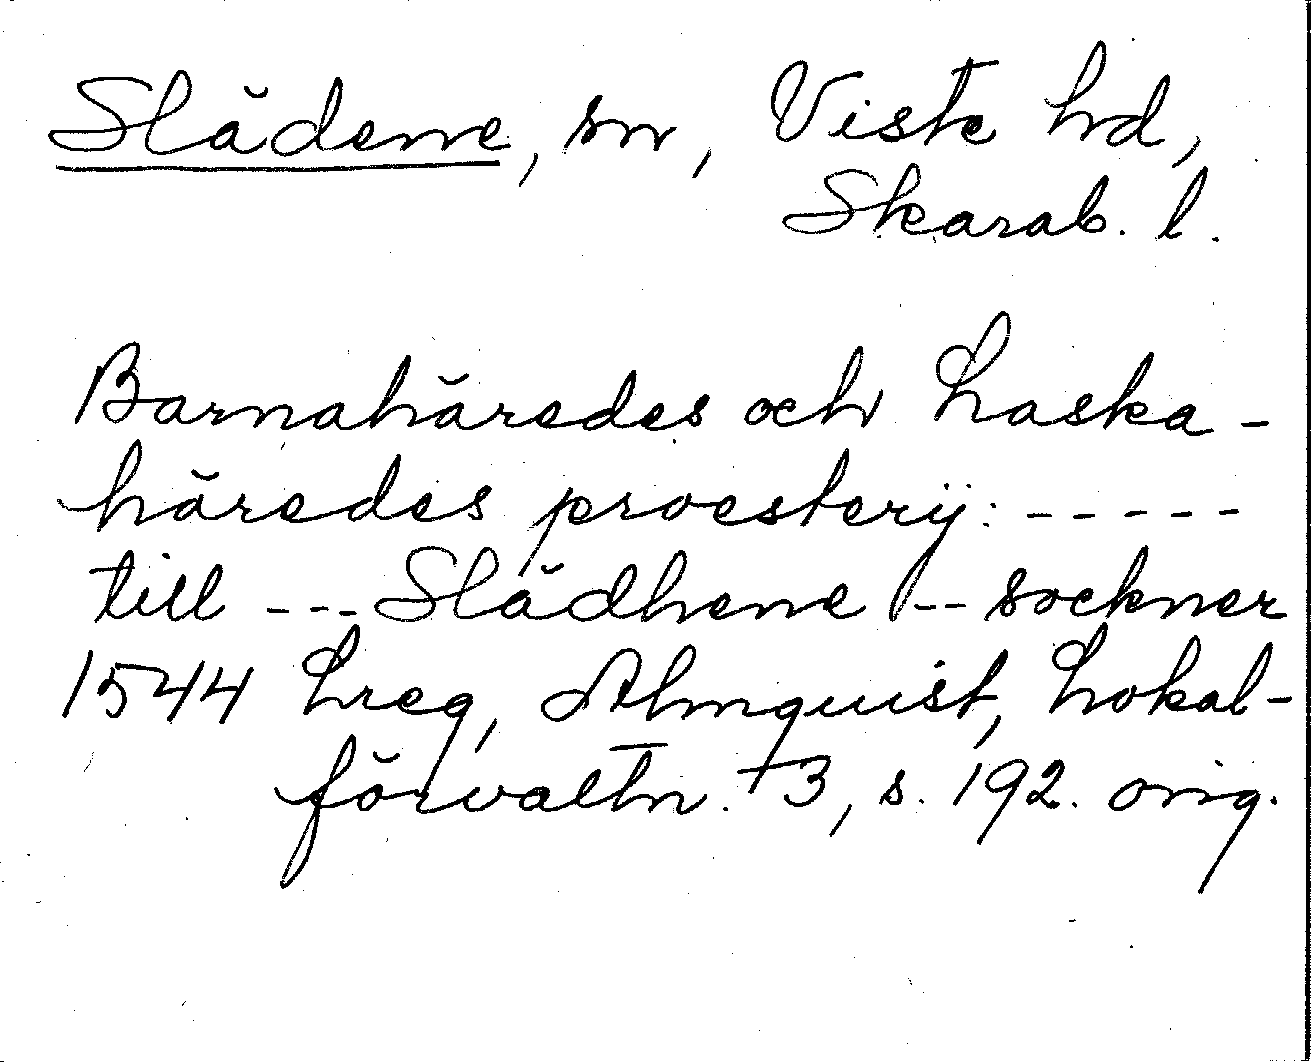 Slädene, sn, Viste hd,
Skarab. l.
Barnahäredes och Laska-
häredes proesterij: - - - - -
till - - - Slädhene - - sockner
1544 Lreg, Almquist, Lokal-
förvaltn. +3, s. 192. orig.